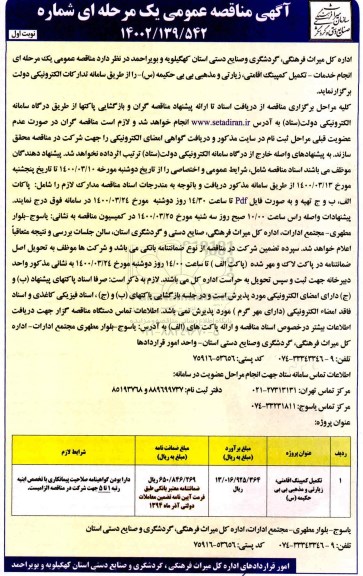 آگهی مناقصه عمومی یک مرحله ای شماره
۱۴۰۰۲/۱۳۹/۵۴۲
نوبت اول
اداره کل میراث فرهنگی، گردشگری و صنایع دستی استان کهگیلویه و بویراحمد در نظر دارد مناقصه عمومی یک مرحله ای
انجام خدمات - تکمیل کمپینگ اقامتی، زیارتی و مذهبی بی بی حکیمه (س)-را از طریق سامانه تدارکات الکترونیکی دولت
برگزار نماید.
کلیه مراحل برگزاری مناقصه از دریافت اسناد تا ارائه پیشنهاد مناقصه گران و بازگشایی پاکتها از طریق درگاه سامانه
الکترونیکی دولت(ستاد) به آدرس www.setadiran.ir انجام خواهد شد و لازم است مناقصه گران در صورت عدم
عضویت قبلی مراحل ثبت نام در سایت مذکور و دریافت گواهی امضای الکترونیکی را جهت شرکت در مناقصه محقق
سازند. به پیشنهادهای واصله خارج از درگاه سامانه الکترونیکی دولت(ستاد) ترتیب اثر داده نخواهد شد. پیشنهاد دهندگان
موظف می باشند اسناد مناقصه شامل، شرایط عمومی و اختصاصی را از تاریخ دوشنبه مورخه ۱۴۰۰/۰۳/۱۰ تا تاریخ پنجشنبه
مورخ ۱۴۰۰/۰۳/۱۳ از طریق سامانه مذکور دریافت و باتوجه به مندرجات اسناد مناقصه مدارک لازم را شامل: پاکات
الف، ب و ج تهیه و به صورت فایل Pdf تا ساعت ۱۴/۳۰ روز دوشنبه مورخ ۱۴۰۰/۰۳/۲۴ در سامانه فوق درج نمایند.
پیشنهادات واصله راس ساعت ۱۰/۰۰ صبح روز سه شنبه مورخ ۱۴۰۰/۰۳/۲۵ در کمیسیون مناقصه به نشانی: یاسوج-بلوار
مطهری- مجتمع ادارات، اداره کل میراث فرهنگی، صنایع دستی و گردشگری استان، سالن جلسات بررسی و نتیجه متعاقباً
اعلام خواهد شد. سپرده تضمین شرکت در مناقصه از نوع ضمانتنامه بانکی می باشد و شرکت ها موظف به تحویل اصل
ضمانتنامه در پاکت لاک و مهر شده (پاکت الف) تا ساعت ۱۴/۰۰ روز دوشنبه مورخ ۱۴۰۰/۰۳/۲۴ به نشانی مذکور واحد
دبیرخانه جهت ثبت و سپس تحویل به حراست اداره کل می باشند. لازم به ذکر است: صرفا اسناد پاکتهای پیشنهاد (ب) و
(ج) دارای امضای الکترونیکی مورد پذیرش است و در جلسه بازگشایی پاکتهای (ب) و (ج)، اسناد فیزیکی کاغذی و اسناد
فاقد امضاء الکترونیکی (دارای مهر گرم) مورد پذیرش نمی باشد. اطلاعات تماس دستگاه مناقصه گزار جهت دریافت
اطلاعات بیشتر در خصوص اسناد مناقصه و ارائه پاکت های (الف) به آدرس: یاسوج-بلوار مطهری مجتمع ادارات- اداره
کل میراث فرهنگی، گردشگری وصنایع دستی استان- واحد امور قراردادها
تلفن: ۹-۳۳۳۴۳۳۴۶-۰۷۴ کد پستی: ۵۳۶۵۶-۷۵۹۱۶
اطلاعات تماس سامانه ستاد جهت انجام مراحل عضویت در سامانه:
مرکز تماس تهران: ۲۷۳۱۳۱۳۱-۰۲۱ دفتر ثبت نام: ۸۸۹۶۹۷۳۷ و ۸۵۱۹۳۷۶۸
مرکز تماس یاسوج: ۳۳۲۳۱۸۱۱-۰۷۴
عنوان پروژه:
ردیف عنوان پروژه مبلغ برآورد (مبلغ به ریال) مبلغ ضمانت نامه (مبلغ به ریال) شرایط لازم
۱ تکمیل کمپینگ اقامتی، زیارتی و مذهبی بی بی حکیمه (س) ۱۳/۰۱۶/۹۲۵/۳۶۴ ریال ۶۵۰/۸۴۶/۲۶۹ ریال ضمانتنامه معتبر بانکی طبق فرمت آیین نامه تضمین معاملات دولتی آذر ماه ۱۳۹۴ دارا بودن گواهینامه صلاحیت پیمانکاری با تخصص ابنیه رتبه ۱ تا ۵ جهت شرکت در مناقصه الزامیست.
یاسوج- بلوار مطهری- مجتمع ادارات، اداره کل میراث فرهنگی، گردشگری و صنایع دستی استان
تلفن: ۹-۳۳۳۴۳۳۴۶-۰۷۴ کد پستی: ۵۳۶۵۶-۷۵۹۱۶
امور قراردادهای اداره کل میراث فرهنگی، گردشگری و صنایع دستی استان کهگیلویه و بویراحمد